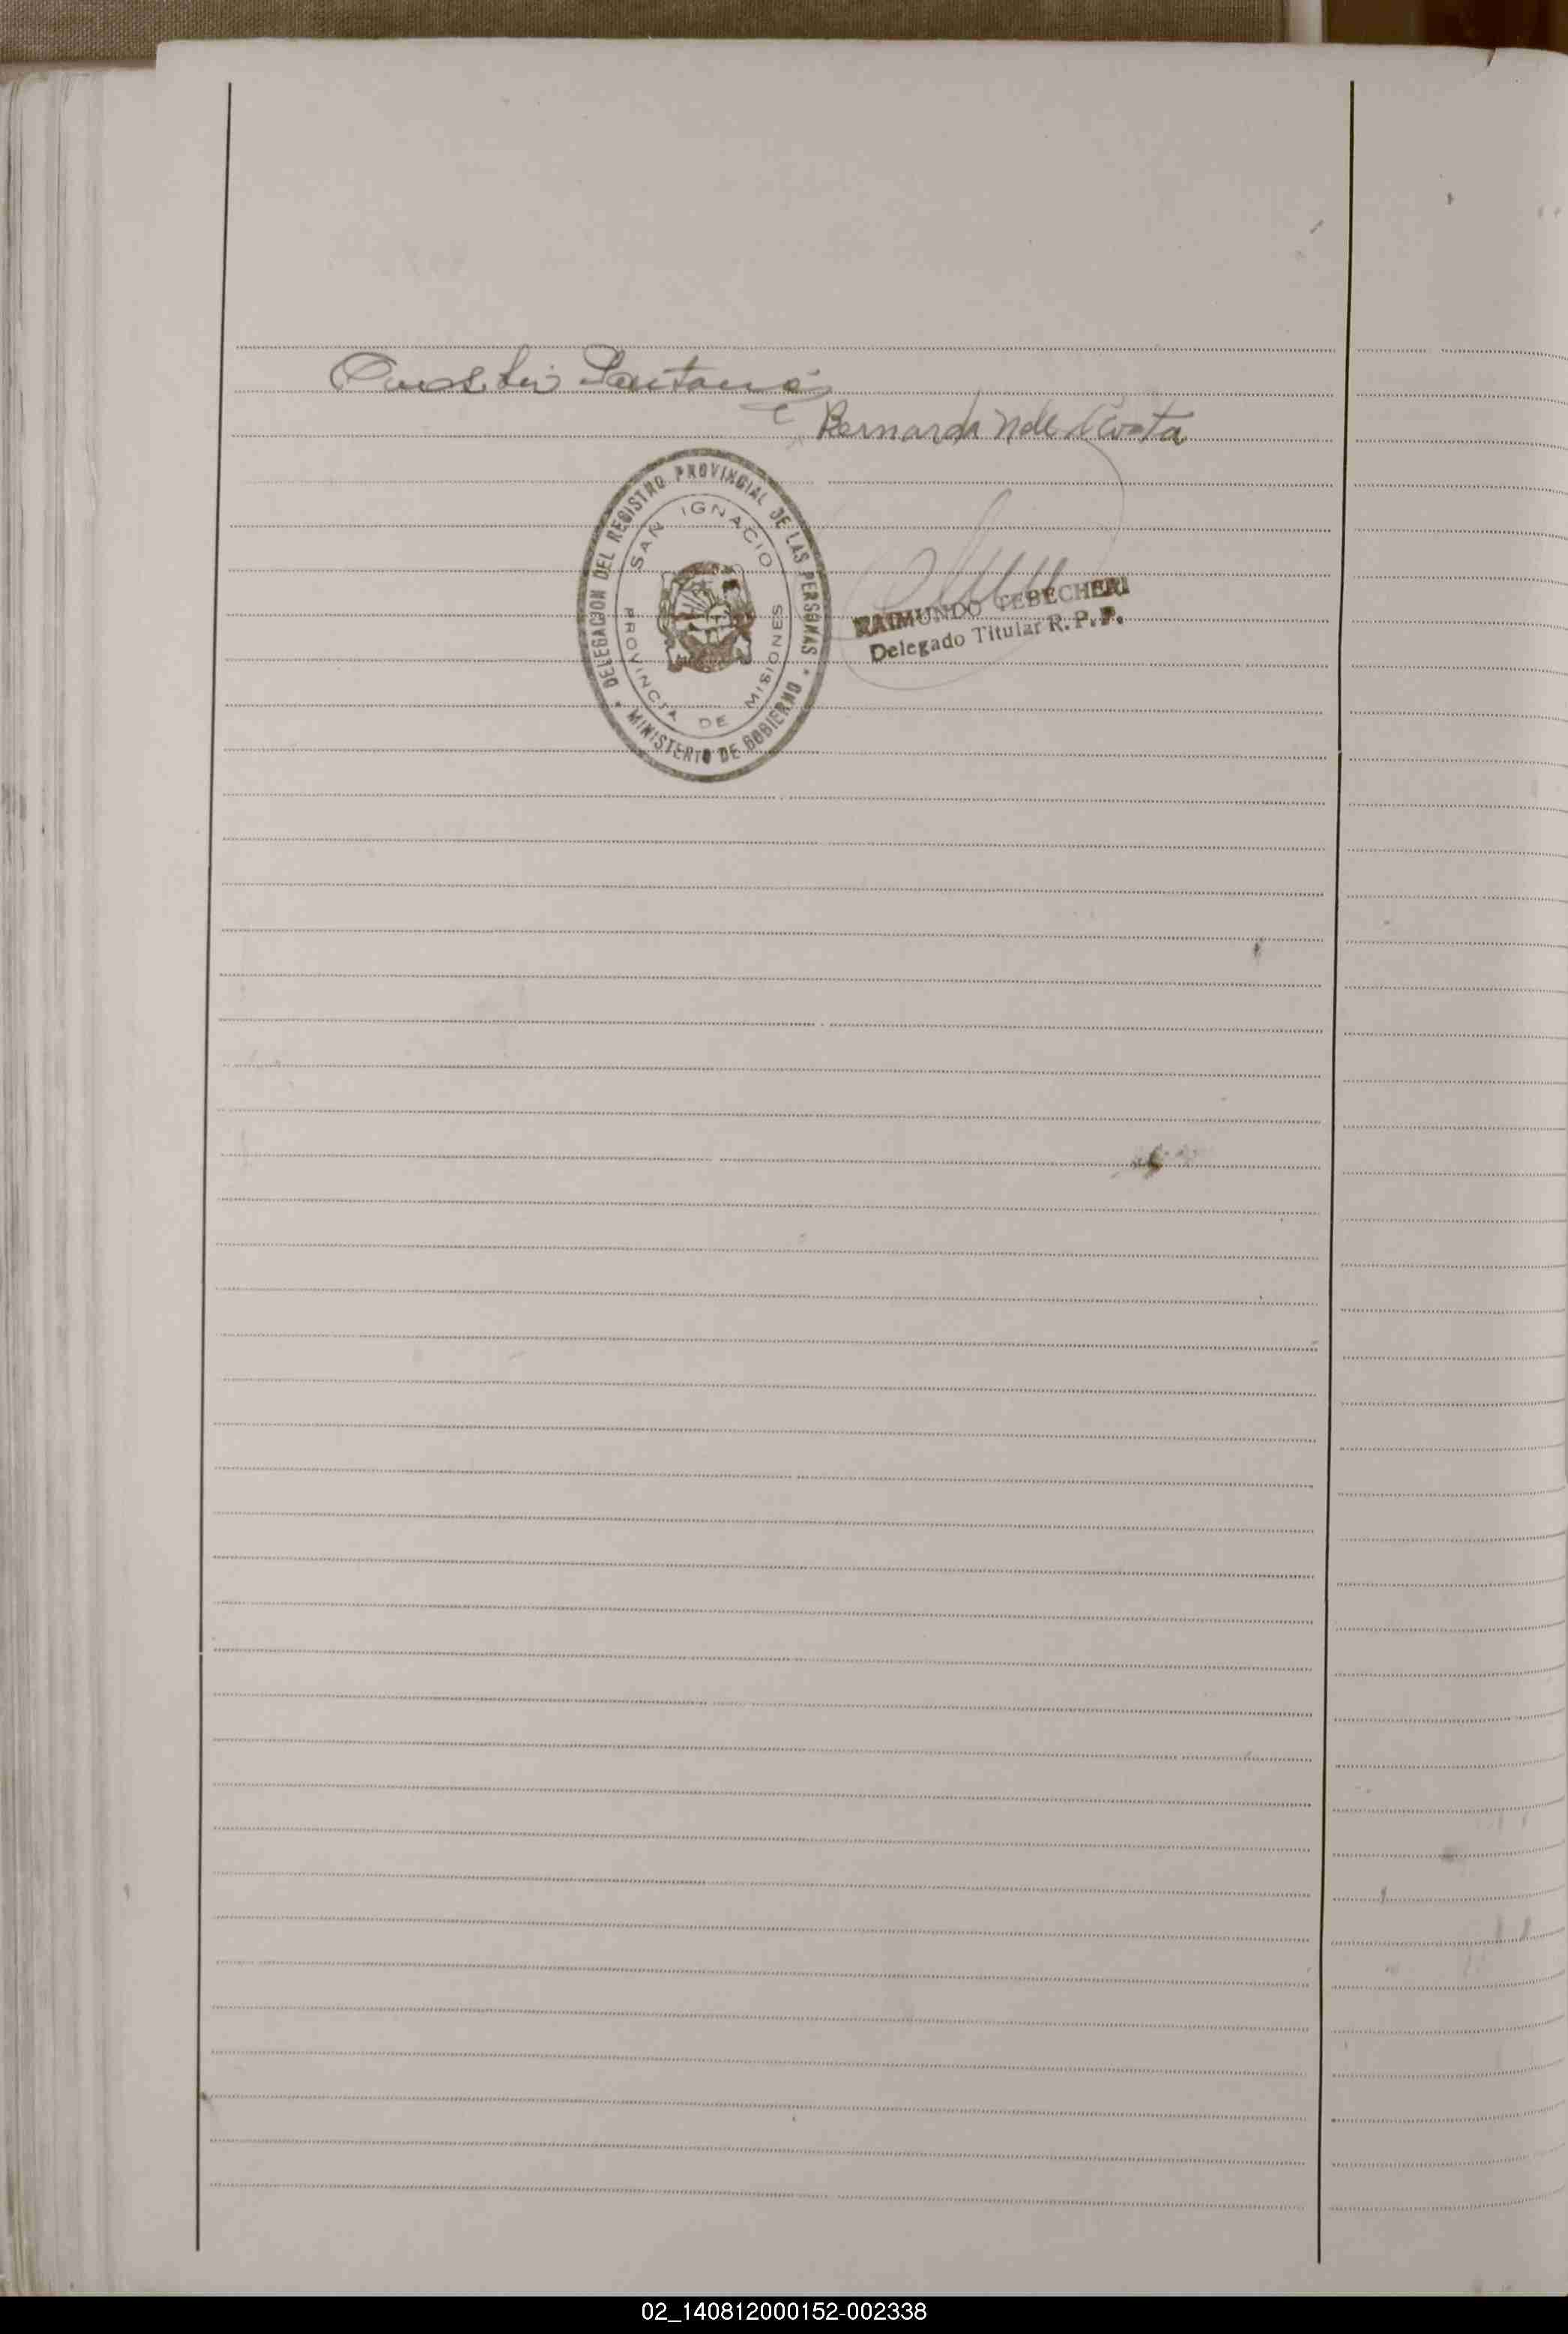 Bernarda N de Acosta
DELEGACION DEL REGISTRO PROVINCIAL DE LAS PERSONAS
* MINISTERIO DE GOBIERNO *
SAN IGNACIO
PROVINCIA DE MISIONES
RAIMUNDO TEBECHERI
Delegado Titular R. P. P.
02_140812000152-002338